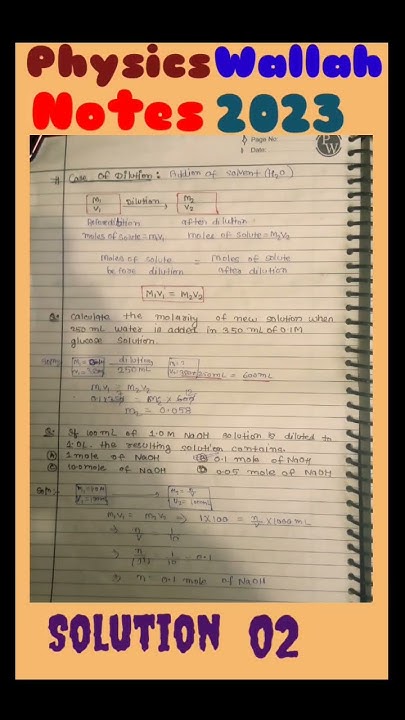 Physics Wallah
Notes 2023
Page No:
Date:
PW
# Case Of Dilution: Addition of solvent (H₂O)
M₁ V₁ Dilution, M₂ V₂
before dilution after dilution
moles of solute = M₁V₁ moles of solute = M₂V₂
moles of solute = moles of solute
before dilution after dilution
M₁V₁ = M₂V₂
Q:- calculate the molarity of new solution when
250 mL water is added in 350 mL of 0.1M
glucose solution.
diluting
250mL = 600mL
M₁V₁ = M₂V₂
M₂ = 0.058
Q:- If 100 mL of 1.0 M NaOH solution is diluted to
1.0L, the resulting solution contains
(A) 1 mole of NaOH (B) 0.1 mole of NaOH
(C) 10.0 mole of NaOH (D) 0.05 mole of NaOH
M₁V₁ = M₂V₂ ⇒ 1×100 = n/V × 1000 mL
⇒ n/V = 1/10
⇒ n/(1) = 1/10 = 0.1
⇒ n = 0.1 mole of NaOH
SOLUTION 02